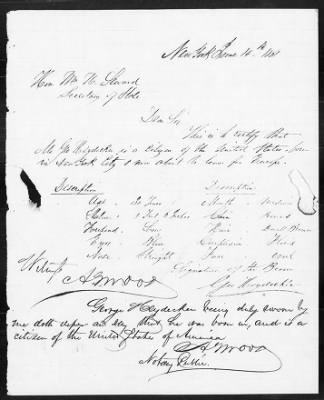 New York June 14th
Hon Wm H. Seward
Secretary of State
Dear Sir
This is to certify that
Mr G Heydecker is a citizen of the United States born
in New York City & now about to leave for Europe.
Description Description
Age Years Mouth Medium
Stature 5 feet Inches Chin Round
Forehead Low Hair Dark Brown
Eyes Blue Complexion
Nose Straight Face oval
Signature of the Bearer
Witness Geo Heydecker
A Wood
George Heydecker being duly sworn by
me doth depose and say that he was born in, and is a
citizen of the United States of America
A Wood
Notary Public.